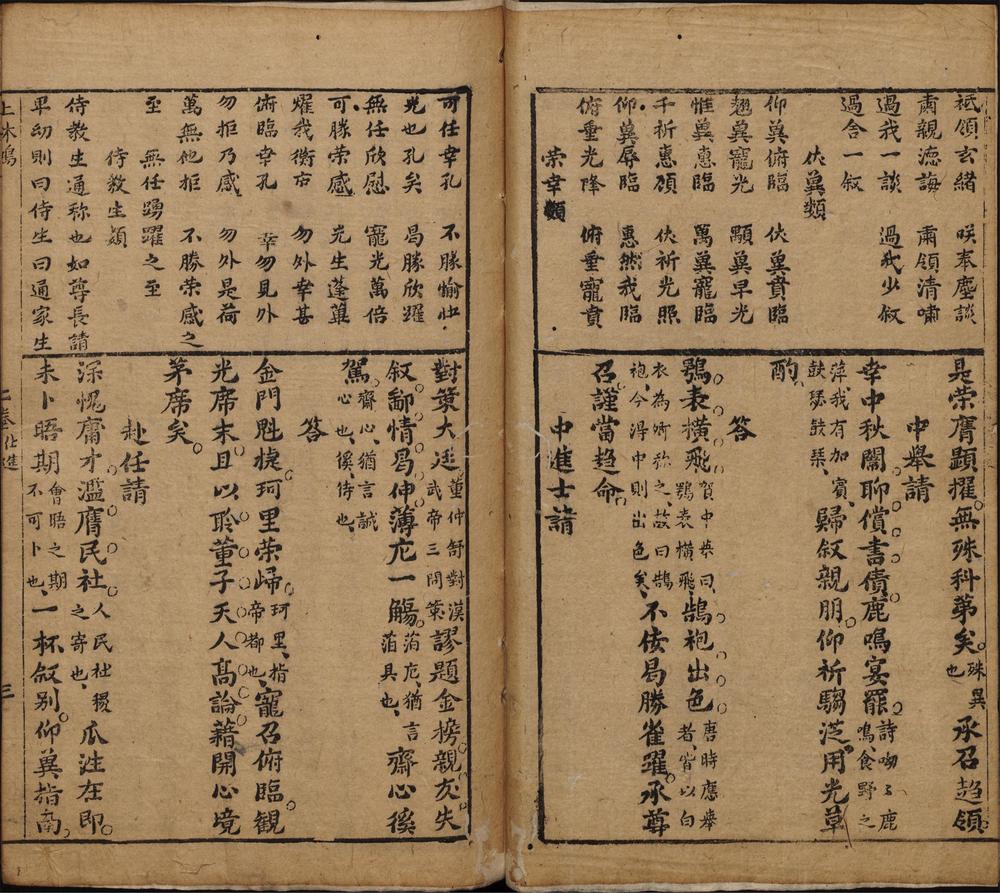 祗領玄緒　咲奉塵談
肅親德誨　肅領清嘯
過我一談　過我少叙
過舍一叙
伏冀類
仰冀俯臨　伏冀賁臨
翹冀寵光　顯冀早光
惟冀惠臨　萬冀寵臨
千祈惠顧　伏祈光照
仰冀辱臨　惠然我臨
俯垂光降　俯垂寵賁
榮幸類
是榮膺顕擢無殊科第矣殊異也承召趋領
中舉請
幸中秋闈聊償書債鹿鳴宴罷詩呦〻鹿鳴食野之
萍我有加賓鼓瑟鼓琴歸叙親朋仰祈騶從用光草
酌
答
鶚表橫飛賀中英曰鶚表橫飛鵠袍出色唐時應舉者皆以白
衣為所称之故曰鵠袍今得中則出色矣不佞曷勝雀躍承尊
召謹當趋命
中進士請
可任幸孔　不勝愉快
光也孔矣　曷勝欣躍
無任欣慰　寵光萬倍
可勝荣感　光生蓬蓽
耀我衡宇　勿外幸甚
俯臨幸孔　幸勿見外
勿拒乃感　勿外是荷
萬無他拒　不勝荣感之
至　無任踴躍之至
侍教生類
侍教生通称也如尊長請
卑幼則曰侍生曰通家生
對策大廷董仲舒對漢武帝三問策謬題金榜親友失
叙鄙情曷伸薄卮一觴薄卮猶言薄具也齋心徯
駕齋心猶言誠心也徯待也
答
金門魁捷珂里荣歸珂里指帝都也寵召俯臨観
光席末且以聆董子天人高論藉開心境
茅席矣
赴任請
深愧庸才濫膺民社人民社稷之寄也瓜涖在即
未卜晤期會晤之期不可卜也一杯叙别仰冀指南
二卷仕進
三